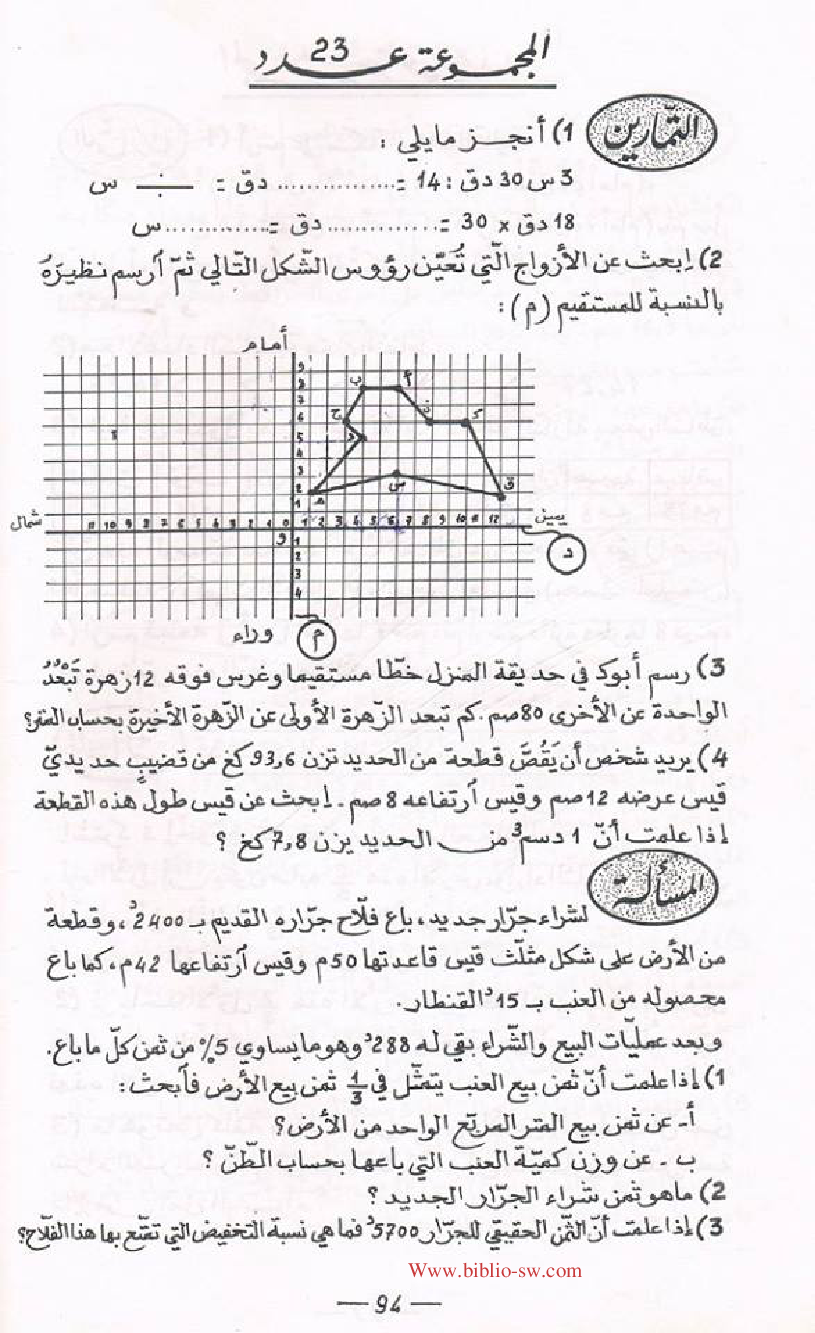 المجموعة عدد 23
التمارين
1) أنجز مايلي :
3 س 30 دق : 14 = ................ دق = ـــ س
18 دق x 30 = .............. دق = ............. س
2) إبحث عن الأزواج الّتي تُعَيّن رؤوس الشّكل التّالي ثمّ آرسم نظيرَهُ
بالنسبة للمستقيم (م) :
أمام
9
8
7
6
5
4
3
2
1
أ
ب
ج
د
هـ
س
ق
ك
شمال
11 10 9 8 7 6 5 4 3 2 1 0 1 2 3 4 5 6 7 8 9 10 11 12
يمين
و
1
2
3
4
د
وراء
م
3) رسم أبوك في حديقة المنزل خطّا مستقيما وغرس فوقه 12 زهرة تَبْعُدُ
الواحدة عن الأخرى 80 صم. كم تبعد الزّهرة الأولى عن الزّهرة الأخيرة بحساب المتر؟
4) يريد شخص أن يَقُصَّ قطعة من الحديد تزن 93,6 كغ من قضيبٍ حديديّ
قيس عرضه 12 صم وقيس آرتفاعه 8 صم. إبحث عن قيس طول هذه القطعة
إذا علمت أنّ 1 دسم³ من الحديد يزن 7,8 كغ ؟
المسألة
لشراء جرّار جديد، باع فلّاح جرّاره القديم بـ 2400د، وقطعة
من الأرض على شكل مثلّث قيس قاعدتها 50م وقيس آرتفاعها 42م، كما باع
محصوله من العنب بـ 15د القنطار.
وبعد عمليّات البيع والشّراء بقي له 288د وهو ما يساوي 5% من ثمن كلّ ما باع.
1) إذا علمت أنّ ثمن بيع العنب يتمثّل في 1/3 ثمن بيع الأرض فآبحث :
أ- عن ثمن بيع المتر المربّع الواحد من الأرض؟
ب - عن وزن كميّة العنب التي باعها بحساب الطّنّ ؟
2) ماهو ثمن شراء الجرّار الجديد ؟
3) إذا علمت أنّ الثّمن الحقيقي للجرّار 5700د فما هي نسبة التخفيض التي تمتّع بها هذا الفلّاح؟
Www.biblio-sw.com
— 94 —